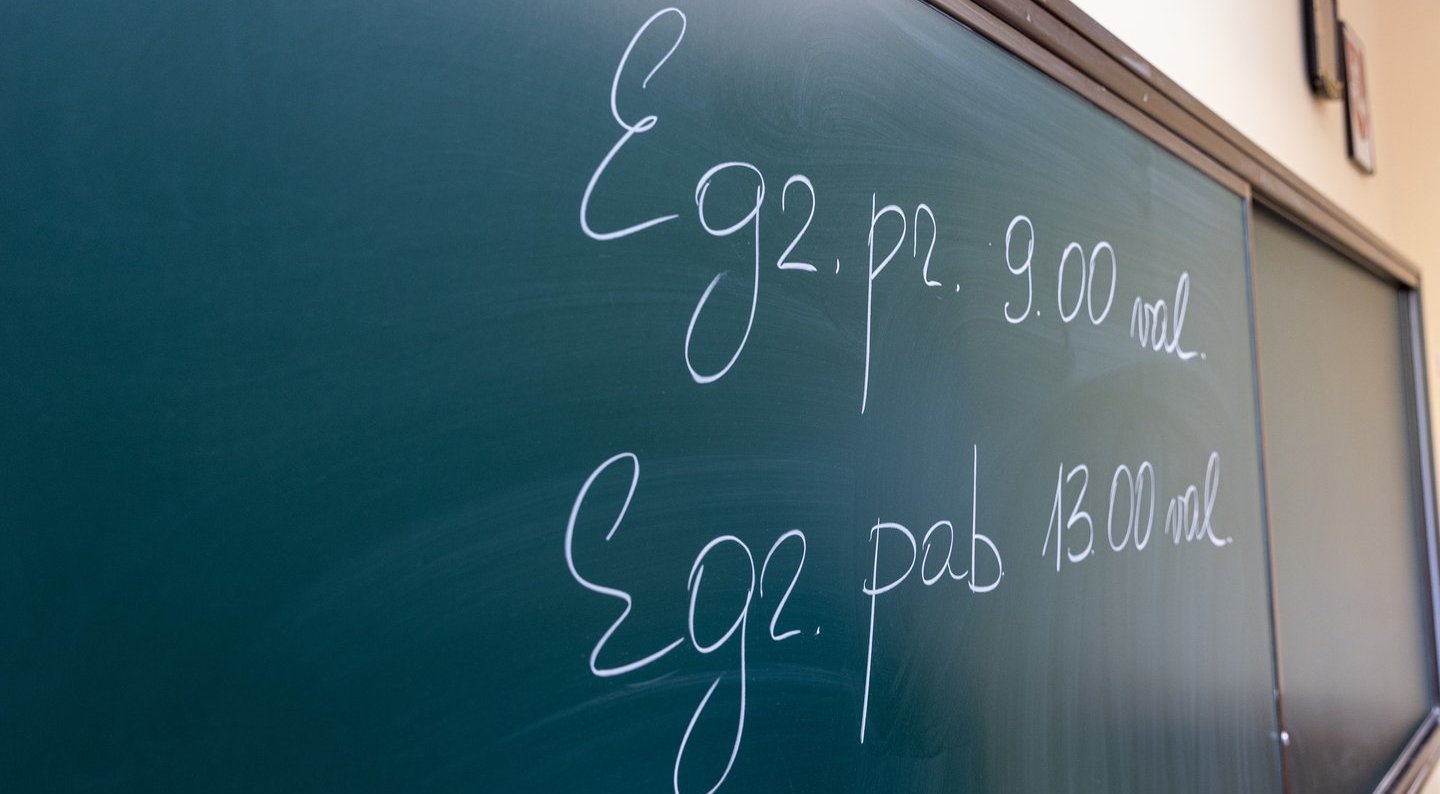 Egz. pr. 9.00 val.
Egz. pab 13.00 val.